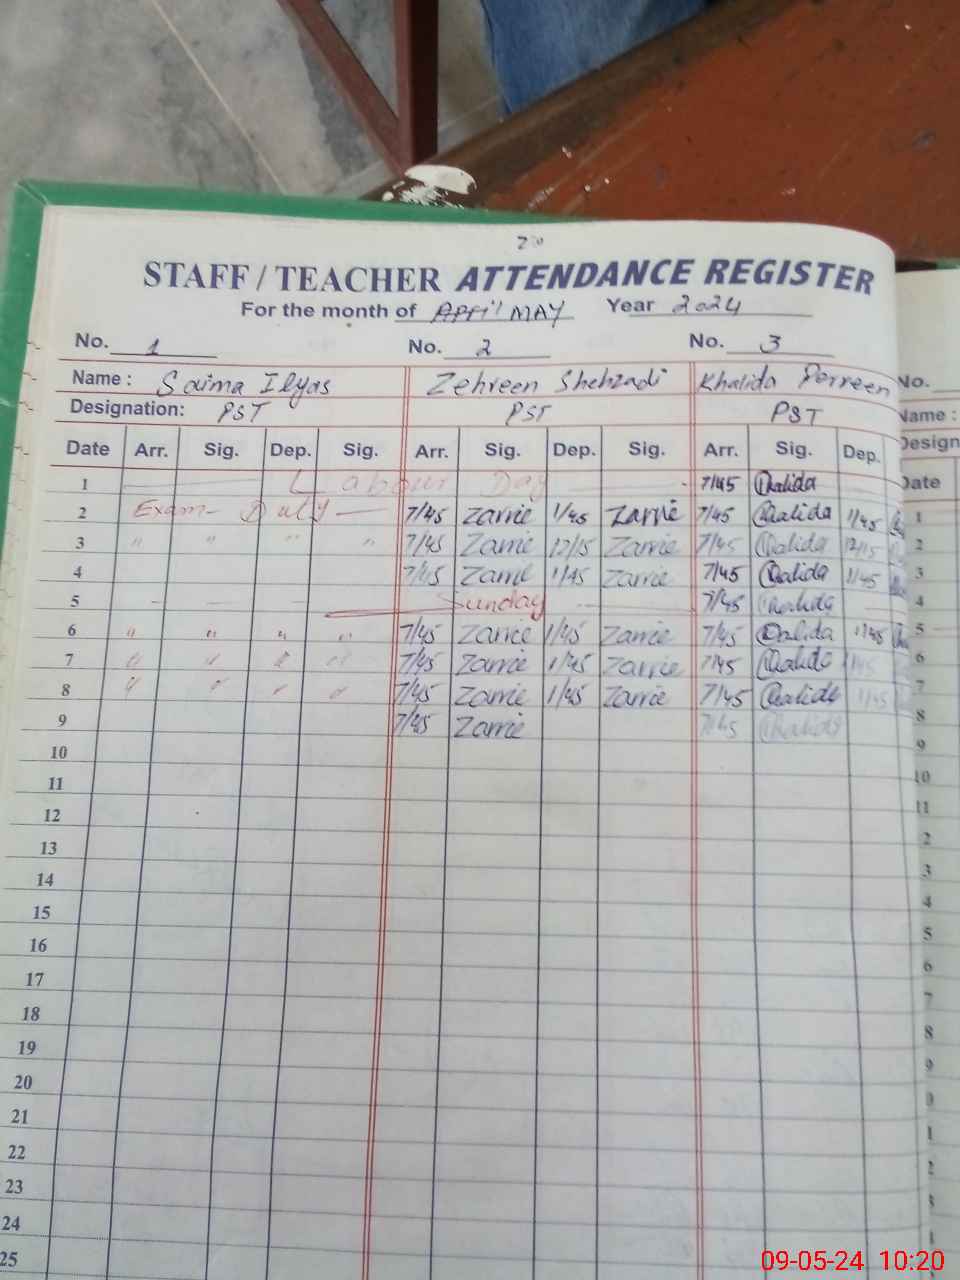 STAFF / TEACHER ATTENDANCE REGISTER
For the month of April MAY Year 2024
No. 1 No. 2 No. 3
Name : Saima Ilyas Zehreen Shehzadi Khalida Perreen
Designation: PST PST PST
Date Arr. Sig. Dep. Sig. Arr. Sig. Dep. Sig. Arr. Sig. Dep.
1 Labour Day 7/45 Qalida
2 Exam Duty 7/45 Zarrie 1/45 Zarrie 7/45 Qalida 1/45
3 " " " " 7/45 Zarrie 12/15 Zarrie 7/45 Qalida 12/15
4 7/45 Zarrie 1/45 Zarrie 7/45 Qalida 1/45
5 Sunday 7/45 Qalida
6 " " " " 7/45 Zarrie 1/45 Zarrie 7/45 Qalida 1/45
7 " " " " 7/45 Zarrie 1/45 Zarrie 7/45 Qalida 1/45
8 " " " " 7/45 Zarrie 1/45 Zarrie 7/45 Qalida 1/45
9 7/45 Zarrie 7/45 Qalida
10
11
12
13
14
15
16
17
18
19
20
21
22
23
24
25
No.
Name :
Design
Date
1
2
3
4
5
6
7
8
9
10
11
2
3
4
5
6
7
8
9
0
1
2
3
09-05-24 10:20